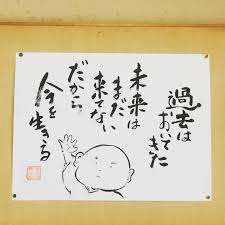 過去は
おいてきた
未来は
まだ
来てない
だから
今を生きる